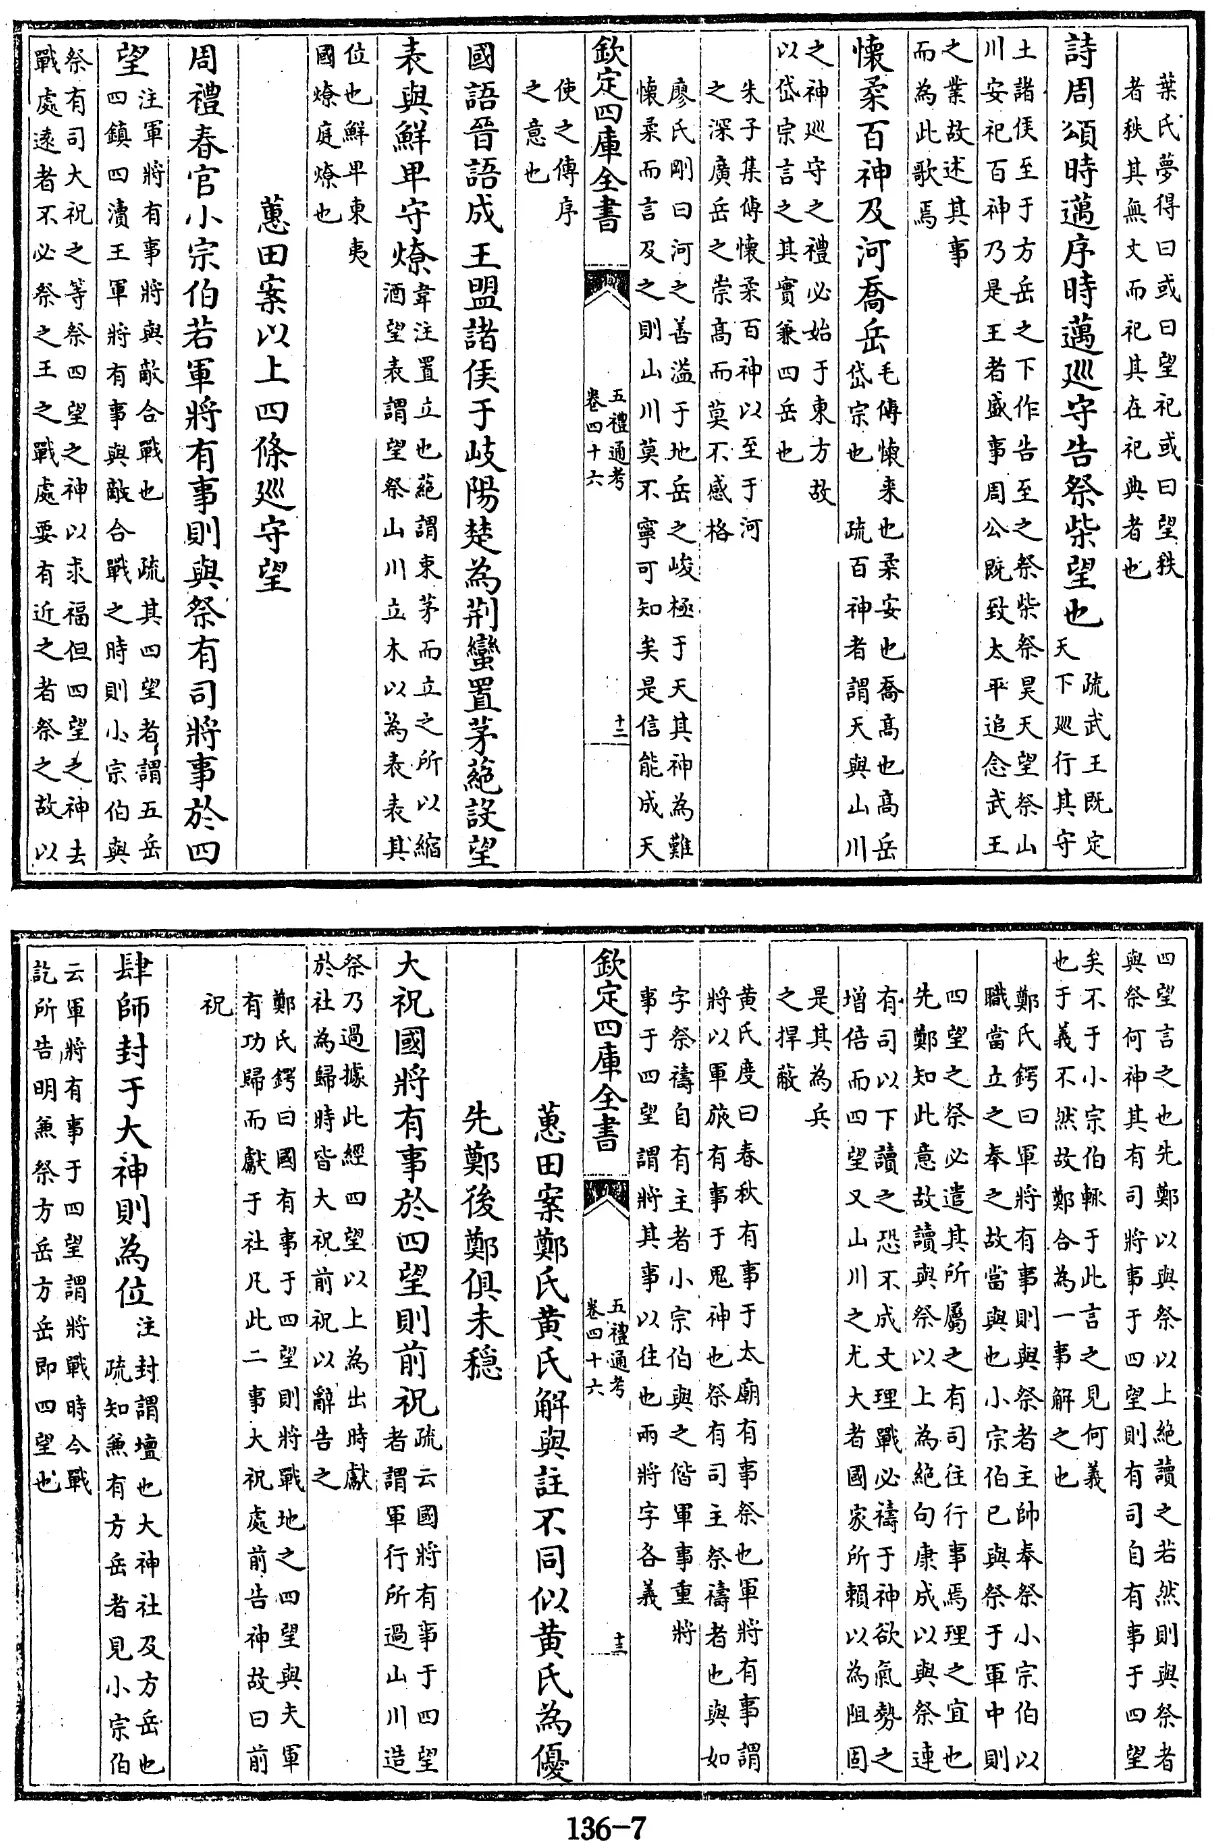 葉氏夢得曰或曰望祀或曰望秩
者秩其無文而祀其在祀典者也
詩周頌時邁序時邁巡守告祭柴望也
疏武王既定
天下巡行其守
土諸侯至于方岳之下作告至之祭柴祭昊天望祭山
川安祀百神乃是王者盛事周公既致太平追念武王
之業故述其事
而為此歌焉
懷柔百神及河喬岳
毛傳懷來也柔安也喬高也高岳
岱宗也 疏百神者謂天與山川
之神巡守之禮必始于東方故
以岱宗言之其實兼四岳也
朱子集傳懷柔百神以至于河
之深廣岳之崇高而莫不感格
廖氏剛曰河之善溢于地岳之峻極于天其神為難
懷柔而言及之則山川莫不寧可知矣是信能成天
欽定四庫全書
五禮通考
卷四十六
十二
使之傳序
之意也
國語晉語成王盟諸侯于岐陽楚為荆蠻置茅蕝設望
表與鮮卑守燎
韋注置立也蕝謂束茅而立之所以縮
酒望表謂望祭山川立木以為表表其
位也鮮卑東夷
國燎庭燎也
蕙田案以上四條巡守望
周禮春官小宗伯若軍將有事則與祭有司將事於四
望
注軍將有事將與敵合戰也 疏其四望者謂五岳
四鎮四瀆王軍將有事與敵合戰之時則小宗伯與
祭有司大祝之等祭四望之神以求福但四望之神去
戰處遠者不必祭之王之戰處要有近之者祭之故以
四望言之也先鄭以與祭以上絶讀之若然則與祭者
與祭何神其有司將事于四望則有司自有事于四望
矣不于小宗伯輒于此言之見何義
也于義不然故鄭合為一事解之也
鄭氏鍔曰軍將有事則與祭者主帥奉祭小宗伯以
職當立之奉之故當與也小宗伯已與祭于軍中則
四望之祭必遣其所屬之有司往行事焉理之宜也
先鄭知此意故讀與祭以上為絶句康成以與祭連
有司以下讀之恐不成文理戰必禱于神欲氣勢之
增倍而四望又山川之尤大者國家所賴以為阻固
是其為兵
之捍蔽
黄氏度曰春秋有事于太廟有事祭也軍將有事謂
將以軍旅有事于鬼神也祭有司主祭禱者也與如
字祭禱自有主者小宗伯與之偕軍事重將
事于四望謂將其事以往也兩將字各義
欽定四庫全書
五禮通考
卷四十六
十三
蕙田案鄭氏黄氏解與註不同似黄氏為優
先鄭後鄭俱未穩
大祝國將有事於四望則前祝
疏云國將有事于四望
者謂軍行所過山川造
祭乃過據此經四望以上為出時獻
於社為歸時皆大祝前祝以辭告之
鄭氏鍔曰國有事于四望則將戰地之四望與夫軍
有功歸而獻于社凡此二事大祝處前告神故曰前
祝
肆師封于大神則為位
注封謂壇也大神社及方岳也
疏知兼有方岳者見小宗伯
云軍將有事于四望謂將戰時今戰
訖所告明兼祭方岳方岳即四望也
136-7